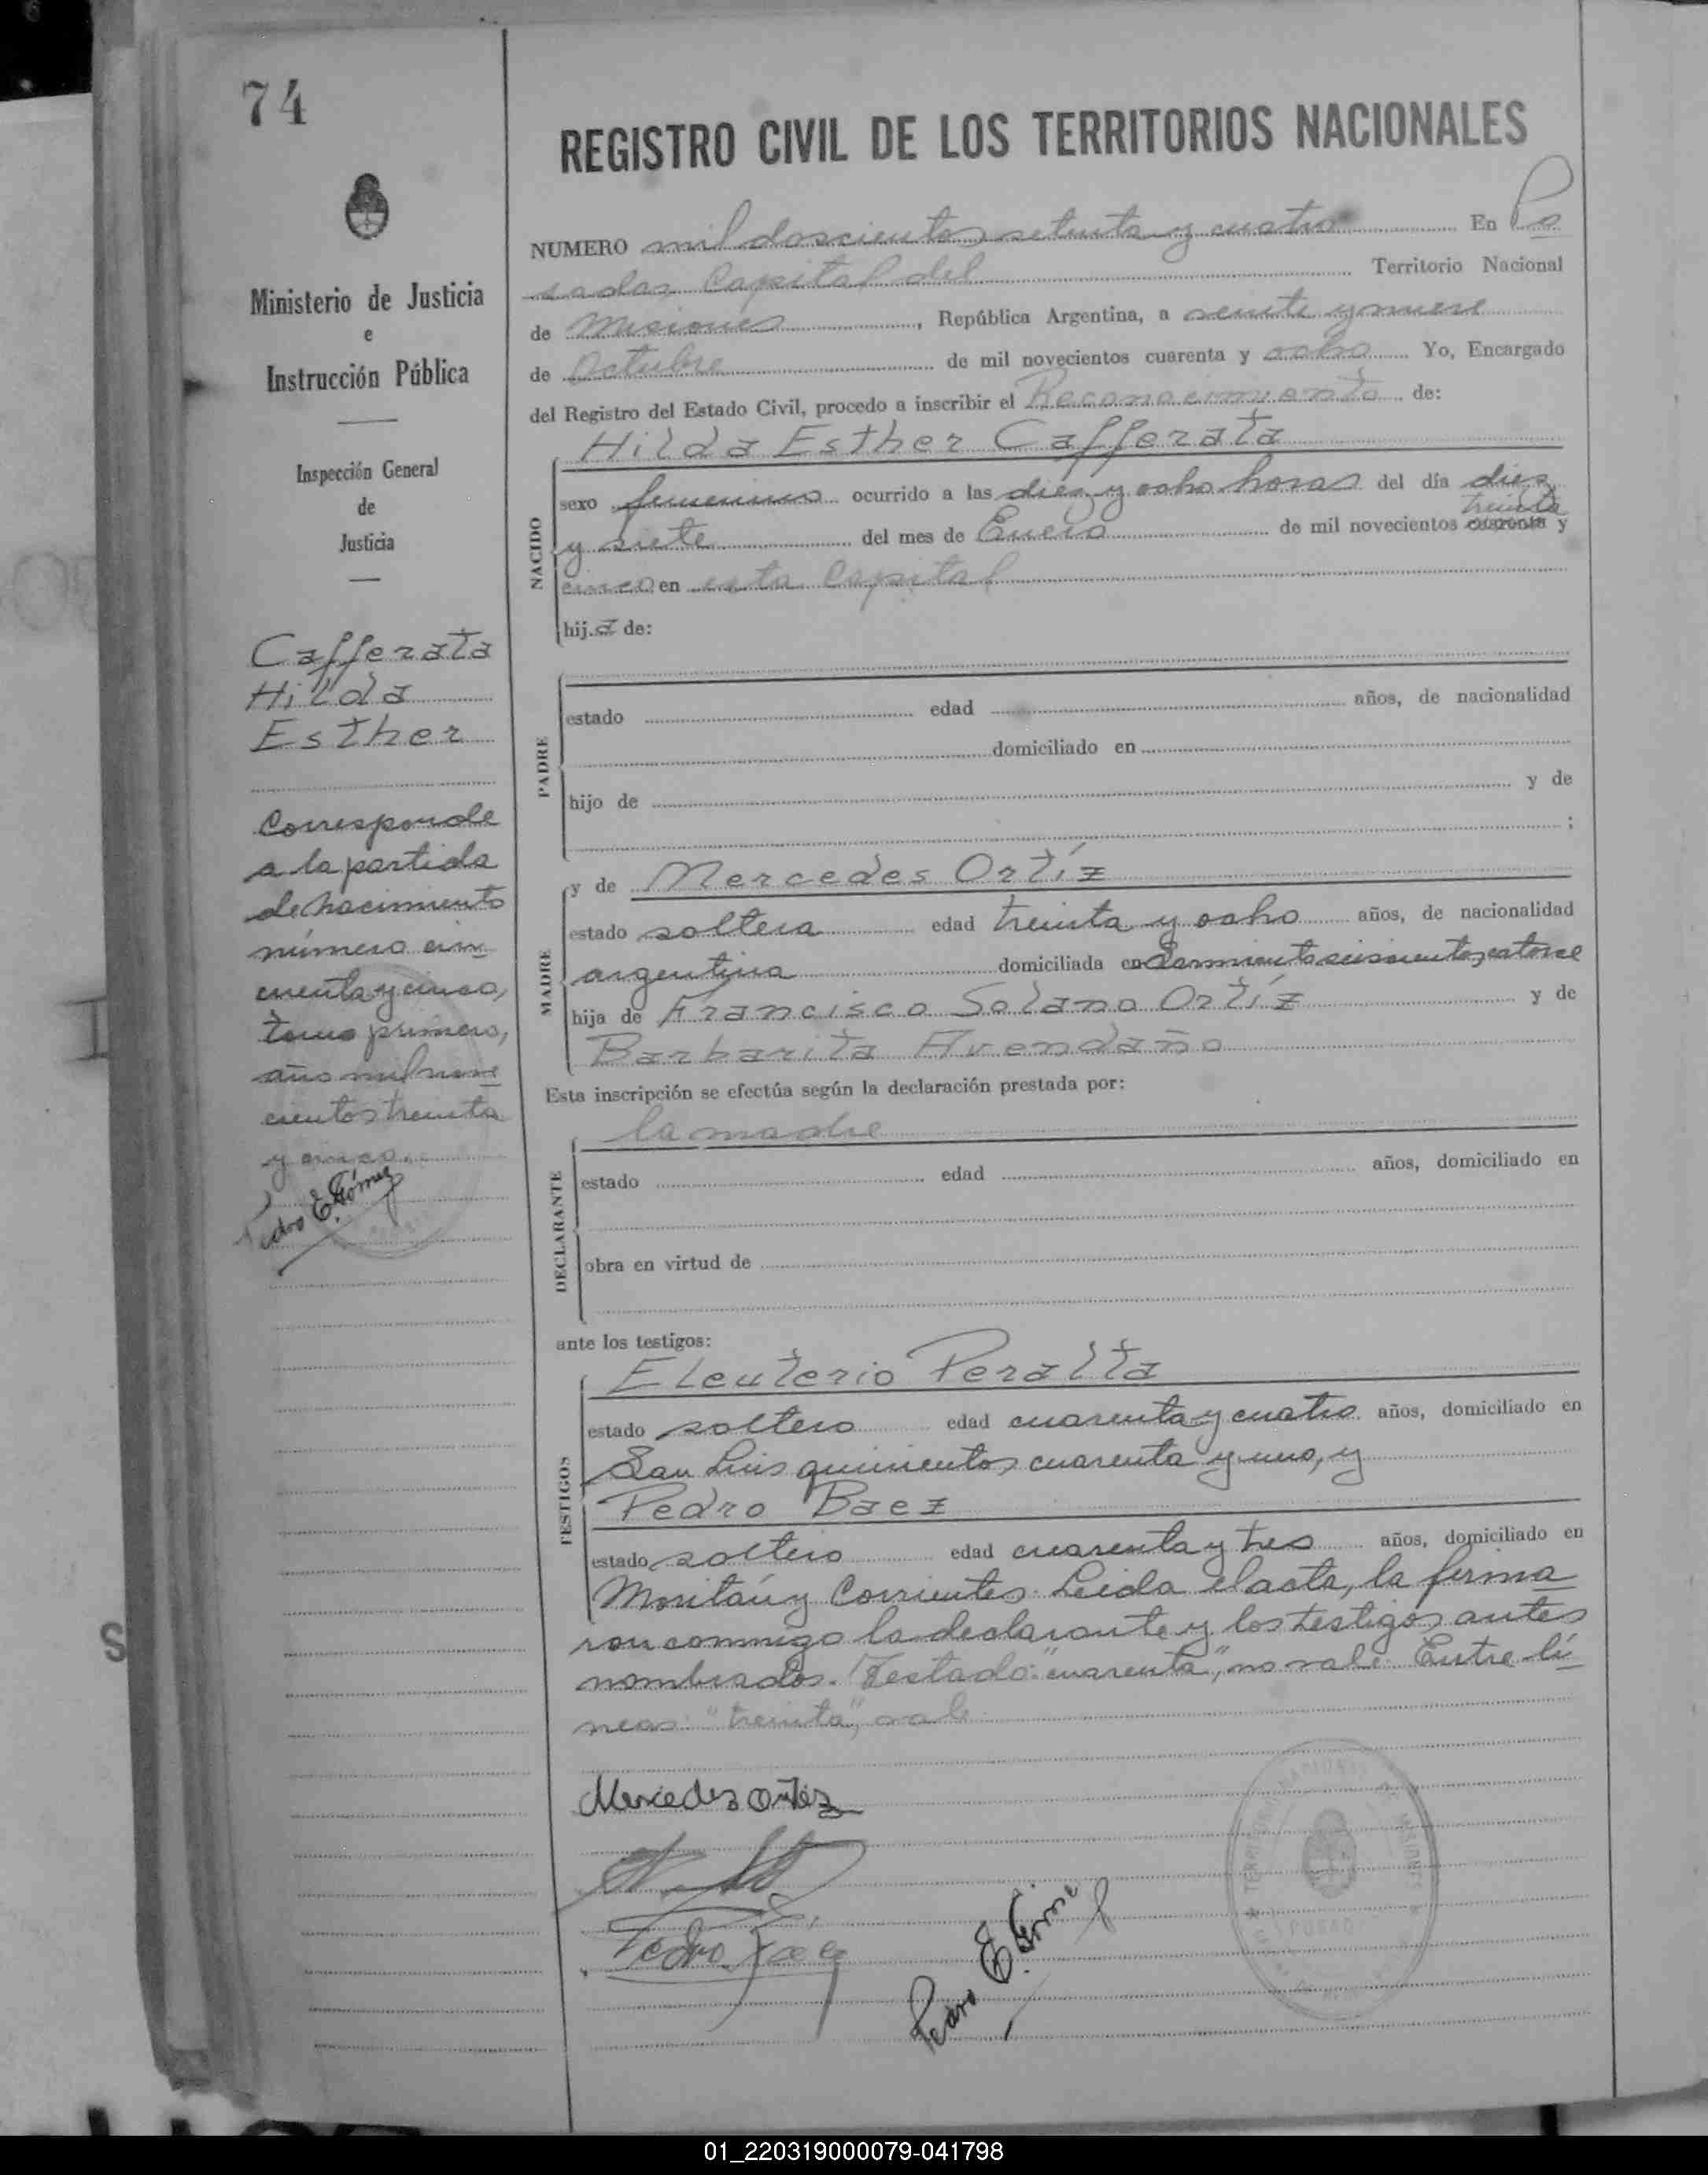 74
REGISTRO CIVIL DE LOS TERRITORIOS NACIONALES
Ministerio de Justicia
e
Instrucción Pública
Inspección General
de
Justicia
Cafferata
Hilda
Esther
Corresponde
a la partida
de nacimiento
número cin
cuenta y cinco,
tomo primero,
año mil nove
cientos treinta
y cinco.
Pedro E. Gómez
NUMERO mil doscientos setenta y cuatro En Po
sadas Capital del Territorio Nacional
de Misiones, República Argentina, a veinte y nueve
de Octubre de mil novecientos cuarenta y ocho Yo, Encargado
del Registro del Estado Civil, procedo a inscribir el Reconocimiento de:
Hilda Esther Cafferata
NACIDO
sexo femenino ocurrido a las diez y ocho horas del día diez
treinta
y siete del mes de Enero de mil novecientos cuarenta y
cinco en esta Capital
hij.a de:
PADRE
estado edad años, de nacionalidad
domiciliado en
hijo de y de
;
MADRE
y de Mercedes Ortíz
estado soltera edad treinta y ocho años, de nacionalidad
argentina domiciliada en Sarmiento seiscientos catorce
hija de Francisco Solano Ortíz y de
Barbarita Avendaño
Esta inscripción se efectúa según la declaración prestada por:
la madre
DECLARANTE
estado edad años, domiciliado en
obra en virtud de
ante los testigos:
Eleuterio Peralta
TESTIGOS
estado soltero edad cuarenta y cuatro años, domiciliado en
San Luis quinientos cuarenta y uno, y
Pedro Baez
estado soltero edad cuarenta y tres años, domiciliado en
y Corrientes. Leida el acta, la firma
ron conmigo la declarante y los testigos antes
nombrados. Testado: "cuarenta", no vale. Entre lí
neas: "treinta", vale
Mercedes Ortiz
Pedro Baez
Pedro E. Gómez
01_220319000079-041798